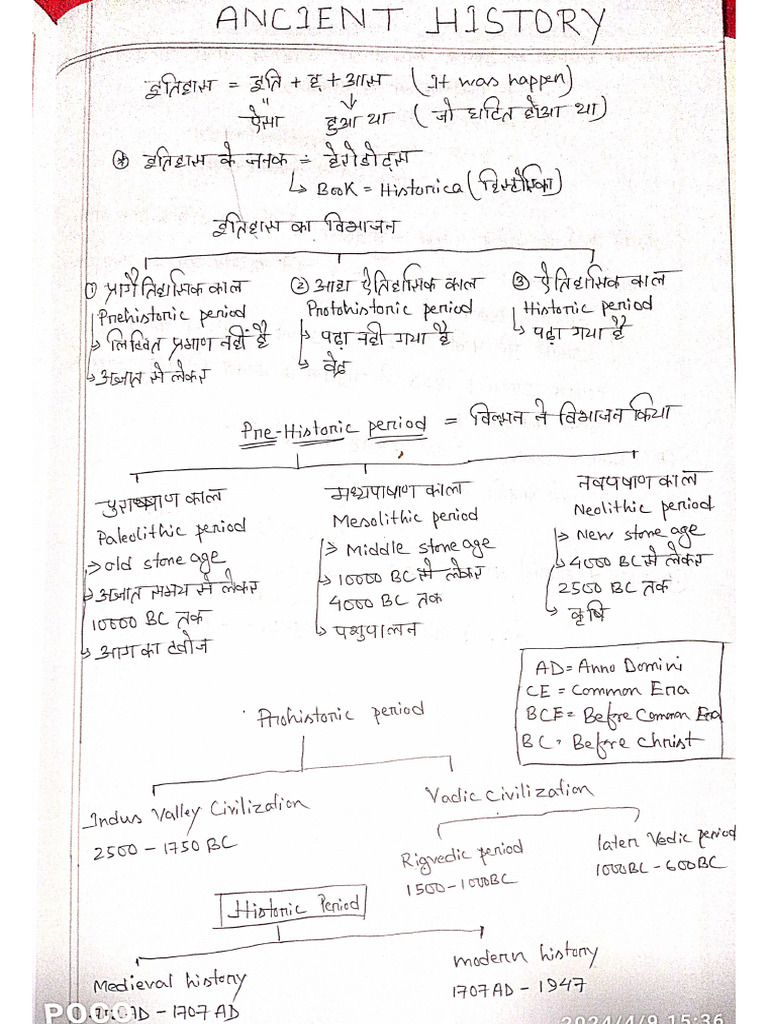 ANCIENT HISTORY
इतिहास = इति + ह + आस (It was happen)
ऐसा हुआ था (जो घटित होआ था)
* इतिहास के जनक = हेरोडोट्स
↳ Book = Historica (हिस्टोरिका)
इतिहास का विभाजन
① प्रागैतिहासिक काल ② आद्य ऐतिहासिक काल ③ ऐतिहासिक काल
Prehistoric period Protohistoric period Historic period
→ लिखित प्रमाण नहीं है → पढ़ा नही गया है → पढ़ा गया है
→ अज्ञात से लेकर → वेद
Pre-Historic period = ने विभाजन किया
पुरापाषाण काल मध्यपाषाण काल नवपषाण काल
Paleolithic period Mesolithic period Neolithic period
→ old stone age → Middle stone age → New stone age
→ अज्ञात समय से लेकर → 10000 BC से लेकर → 4000 BC से लेकर
10000 BC तक 4000 BC तक 2500 BC तक
→ आग का खोज → पशुपालन → कृषि
AD = Anno Domini
CE = Common Era
BCE = Before Common Era
BC = Before Christ
Prohistoric period
Indus Valley Civilization Vadic Civilization
2500 - 1750 BC
Rigvedic period later Vedic period
1500-1000BC 1000BC - 600BC
Historic Period
Medieval history modern history
AD - 1707 AD 1707 AD - 1947
POCO
2024/4/9 15:36